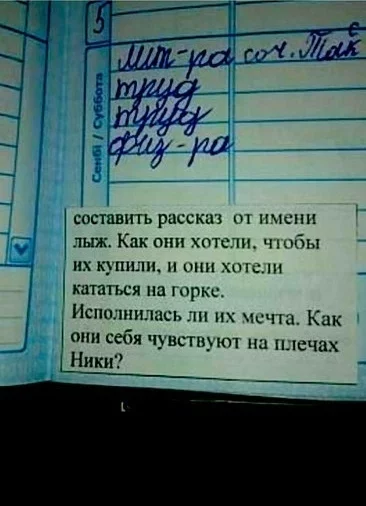 5
лит-ра соч.
труд
труд
физ-ра
Сенбі / Суббота
составить рассказ от имени
лыж. Как они хотели, чтобы
их купили, и они хотели
кататься на горке.
Исполнилась ли их мечта. Как
они себя чувствуют на плечах
Ники?